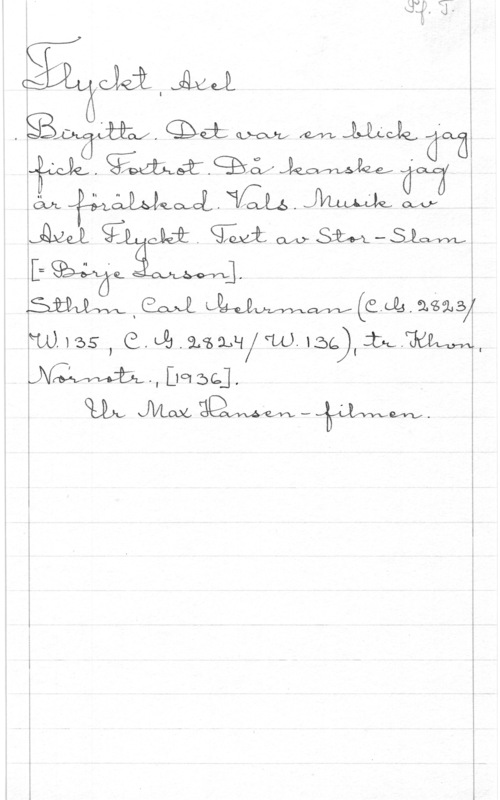 Pf. T.
Flyckt, Axel
Birgitta. Det var en blick jag
fick. Foxtrot. Då kanske jag
är förälskad. Vals. Musik av
Axel Flyckt. Text av Stor-Slam
[= Börje Larson].
Sthlm, Carl Gehrman (C.G. 2823/
W. 135, C.G. 2824/ W. 136), tr. Khvn,
Nornotr., [1936].
Ur Max Hansen-filmen.